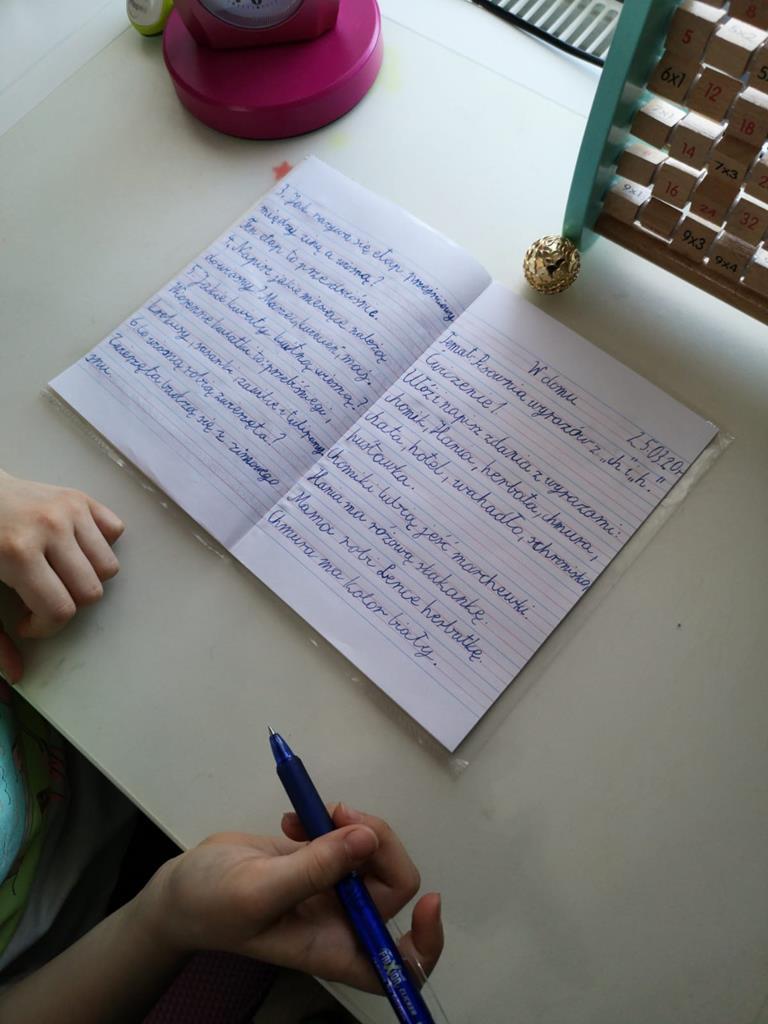 3. Jak nazywa się etap przejściowy
między zimą a wiosną?
Ten etap to przedwiośnie.
4. Napisz jakie miesiące należą
do wiosny. Marzec, kwiecień, maj.
5. Jakie kwiaty kwitną wiosną?
Wiosenne kwiatki to: przebiśniegi,
krokusy, sasanki, żonkile i tulipany
6. Co wiosną robią zwierzęta?
Zwierzęta budzą się z zimowego
snu
W domu 25.03.20
Temat: Pisownia wyrazów z "ch i "h."
Ćwiczenie 1
Ułóż i napisz zdania z wyrazami:
chomik, Hania, herbata, chmura,
chata hotel, wahadło, schronisko,
hustawka.
Chomiki lubią jeść marchewki.
Hania ma różową skakankę.
Mama robi Lence herbatkę.
Chmura ma kolor biały.
5
6x1
12
18
14
7x3
9x1
16
24
32
9x3
9x4
FriXion CLICKER